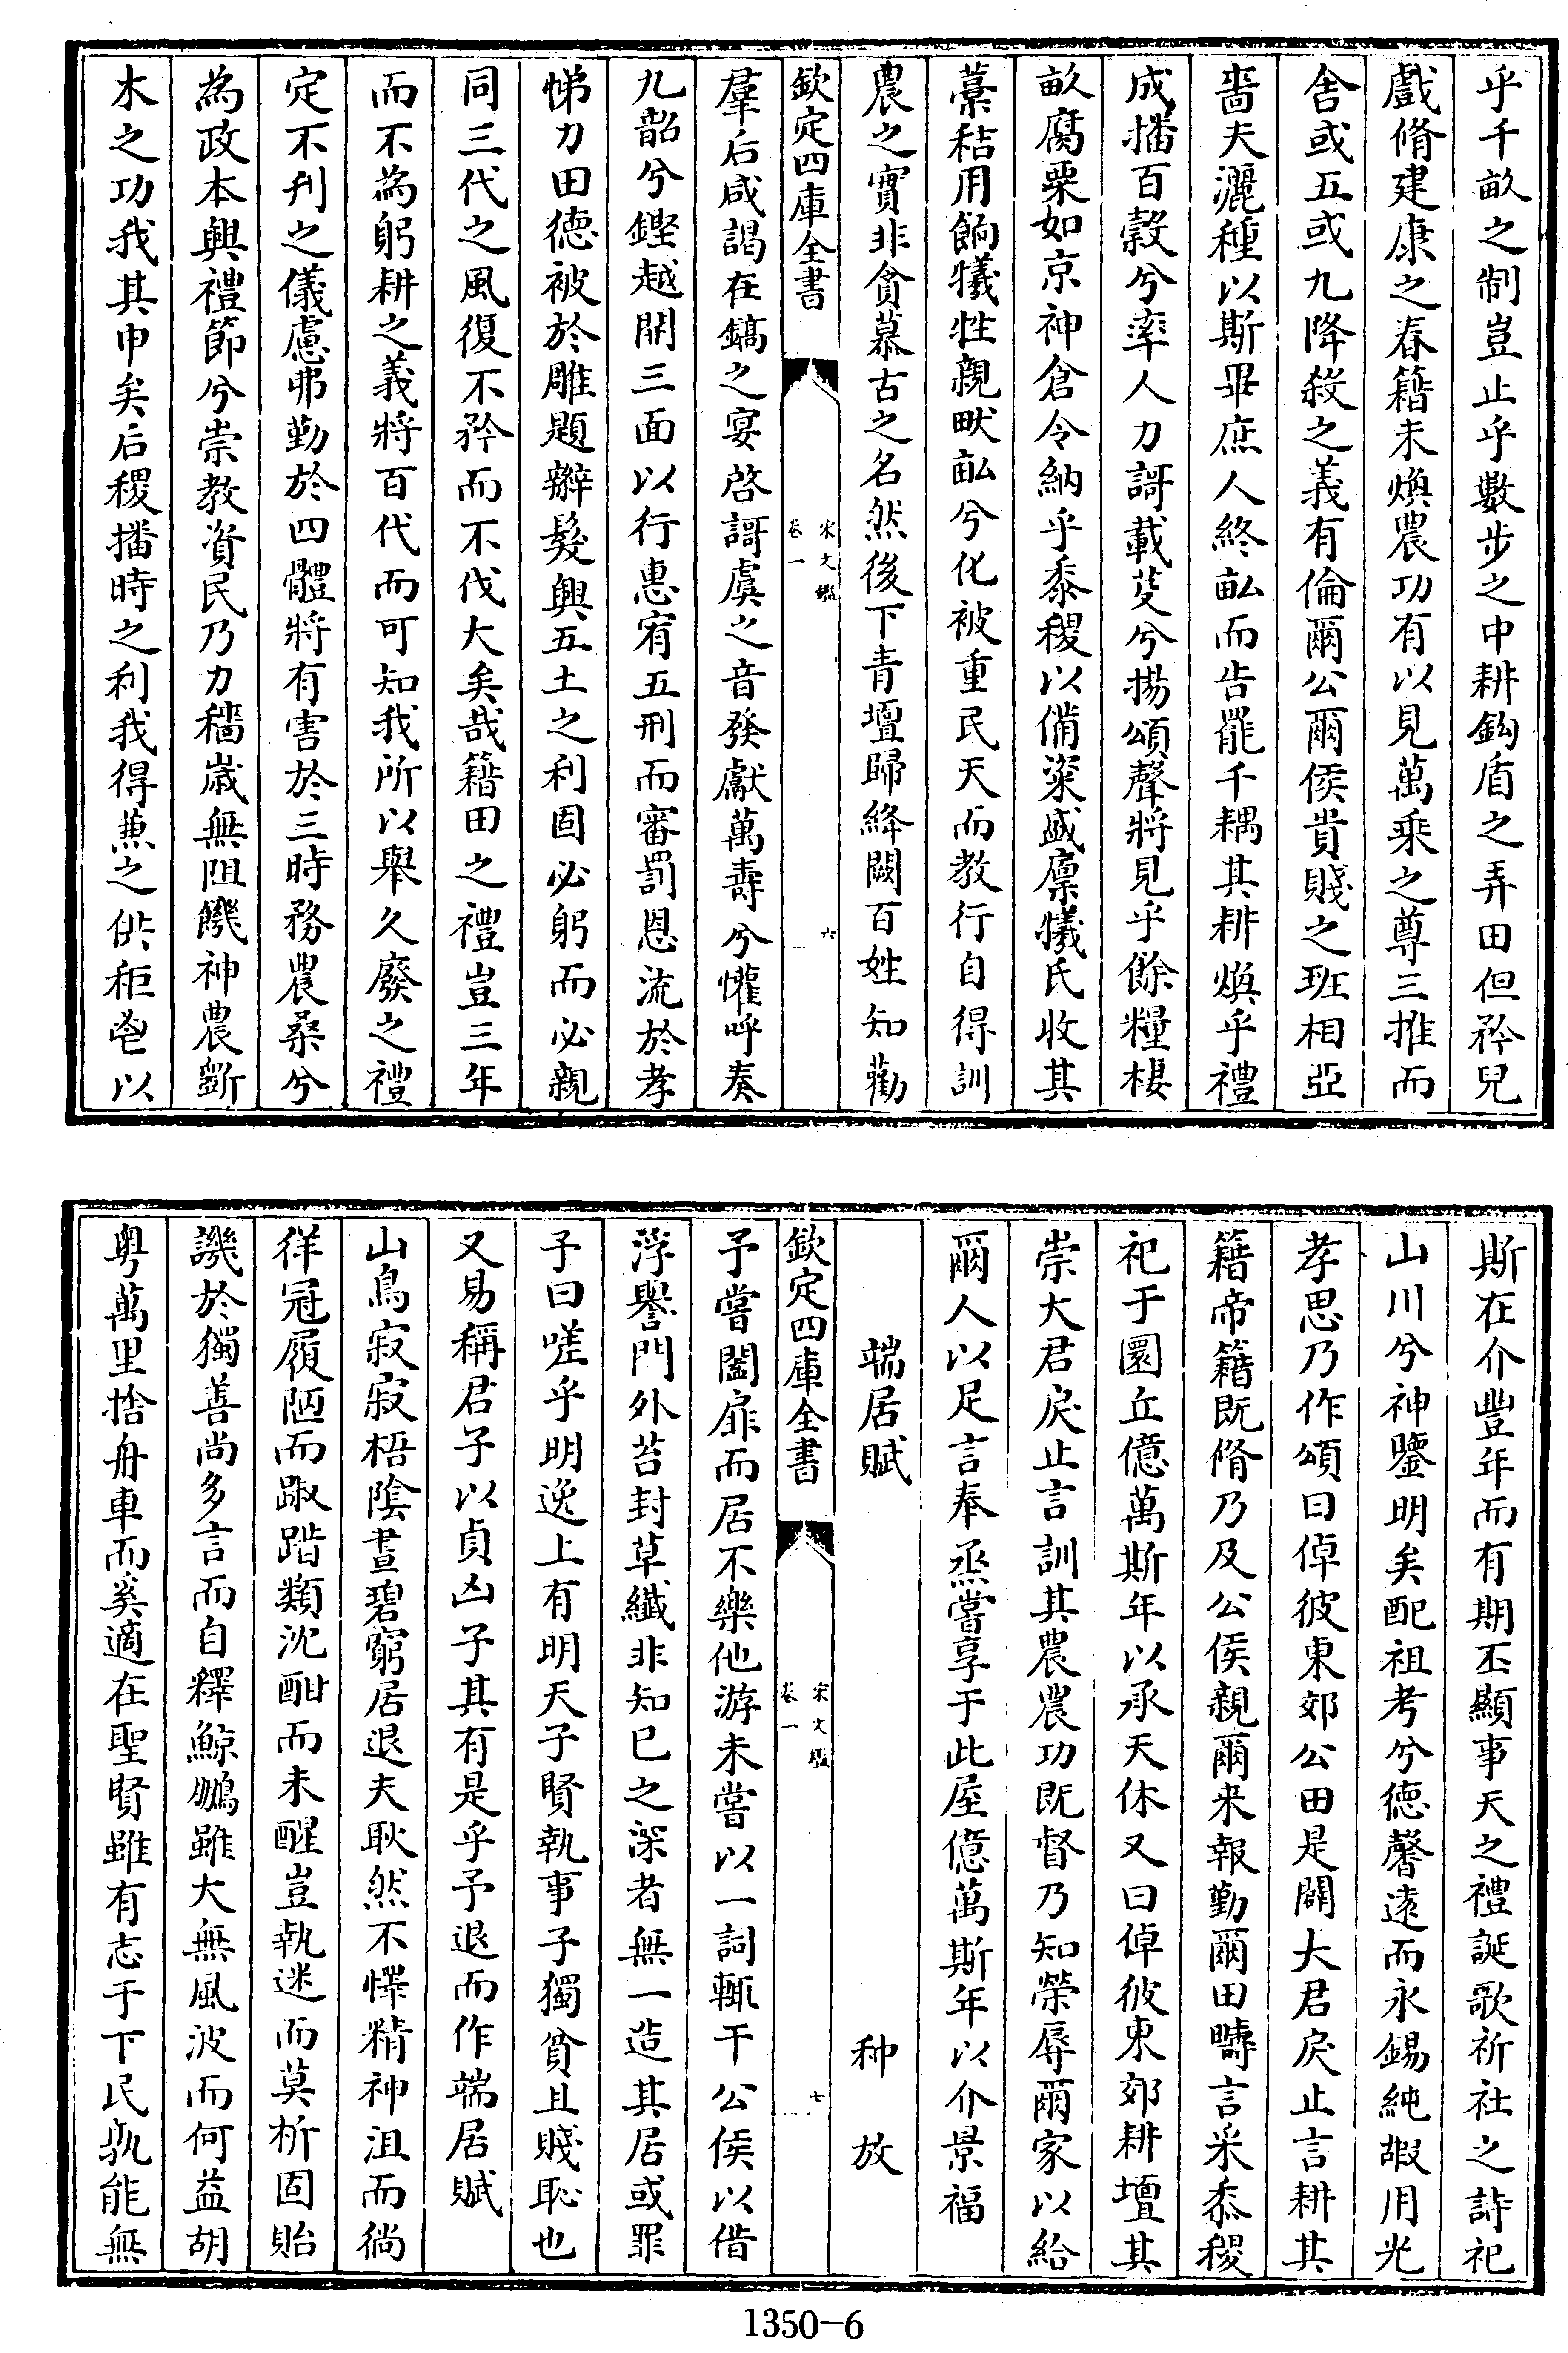 乎千畝之制豈止乎數步之中耕鈎盾之弄田但矜兒
戲脩建康之春籍未煥農功有以見萬乘之尊三推而
舍或五或九降殺之義有倫爾公爾侯貴賤之班相亞
嗇夫灑種以斯畢庶人終畝而告罷千耦其耕煥乎禮
成播百穀兮率人力謌載芟兮揚頌聲將見乎餘糧棲
畝腐粟如京神倉令納乎黍稷以備粢盛廪犧氏收其
藁秸用餉犧牲親畎畝兮化被重民天而教行自得訓
農之實非貪慕古之名然後下青壇歸絳闕百姓知勸
欽定四庫全書
宋文鑑
卷一
六
羣后咸謁在鎬之宴啓謌虞之音發獻萬壽兮懽呼奏
九韶兮鏗越開三面以行惠宥五刑而審罰恩流於孝
悌力田德被於雕題辮髮興五土之利固必躬而必親
同三代之風復不矜而不伐大矣哉籍田之禮豈三年
而不為躬耕之義將百代而可知我所以舉久廢之禮
定不刋之儀慮弗勤於四體將有害於三時務農桑兮
為政本興禮節兮崇教資民乃力穡嵗無阻饑神農斲
木之功我其申矣后稷播時之利我得兼之供秬鬯以
斯在介豐年而有期丕顯事天之禮誕歌祈社之詩祀
山川兮神鑒明矣配祖考兮德馨遠而永錫純嘏用光
孝思乃作頌曰倬彼東郊公田是闢大君戾止言耕其
籍帝籍既脩乃及公侯親爾来報勤爾田疇言采黍稷
祀于圜丘億萬斯年以承天休又曰倬彼東郊耕壇其
崇大君戾止言訓其農農功既督乃知榮辱爾家以給
爾人以足言奉烝嘗享于此屋億萬斯年以介景福
端居賦　种放
欽定四庫全書
宋文鑑
卷一
七
予嘗闔扉而居不樂他游未嘗以一詞輒干公侯以偕
浮譽門外苔封草纖非知已之深者無一造其居或罪
予曰嗟乎明逸上有明天子賢執事子獨貧且賤恥也
又易稱君子以貞凶子其有是乎予退而作端居賦
山鳥寂寂梧陰晝碧窮居退夫耿然不懌精神沮而徜
徉冠履陋而踧踖類沈酣而未醒豈執迷而莫析固貽
譏於獨善尚多言而自釋鯨鵬雖大無風波而何益胡
粤萬里捨舟車而奚適在聖賢雖有志于下民孰能無
1350-6